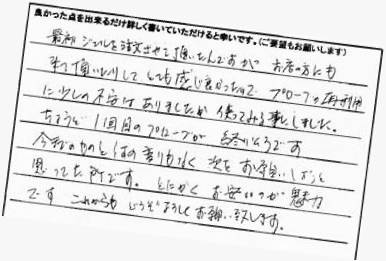 良かった点を出来るだけ詳しく書いていただけると幸いです。(ご要望もお願いします)
最初ジェルを注文させて頂いたんですがお店の方にも
来て頂いたりして、とても感じ良かったので プローブの再利用
に少しの不安はありましたが使ってみる事にしました。
ちょうど1回目のプローブが 終りそうです
今までのものと何の変りもなく 次をお願いしようと
思ってた所です。とにかく お安いのが魅力
です これからも どうぞよろしくお願い致します。